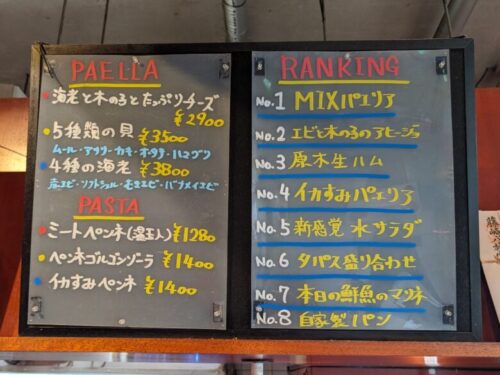 PAELLA
・海老と木の子とたっぷりチーズ
¥2900
・5種類の貝 ¥3500
ムール・アサリ・カキ・ホタテ・ハマグリ
・4種の海老 ¥3800
赤エビ・ソフトシェル・モサエビ・バナメイエビ
PASTA
・ミートペンネ(温玉入) ¥1280
・ペンネゴルゴンゾーラ ¥1400
・イカすみペンネ ¥1400
RANKING
No.1 MIXパエリア
No.2 エビと木の子のアヒージョ
No.3 原木生ハム
No.4 イカすみパエリア
No.5 新感覚 水サラダ
No.6 タパス盛り合わせ
No.7 本日の鮮魚のマリネ
No.8 自家製パン